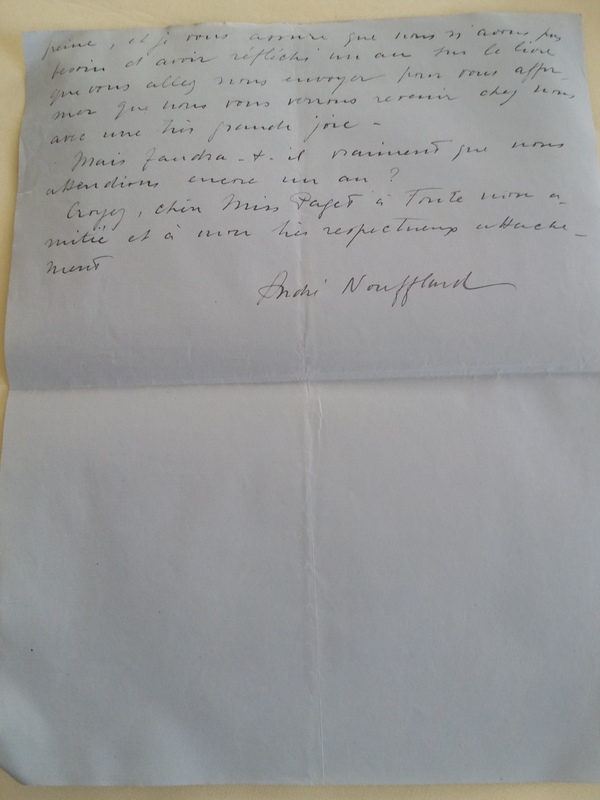 peine, et je vous assure que nous n'avons pas
besoin d'avoir réfléchi un an sur le livre
que vous allez nous envoyer pour vous affir-
mer que nous vous verrons revenir chez nous
avec une très grande joie -
Mais faudra-t-il vraiment que nous
attendions encore un an ?
Croyez, chère Miss Paget à toute mon a-
mitié et à mon très respectueux attache-
ment
André Noufflard